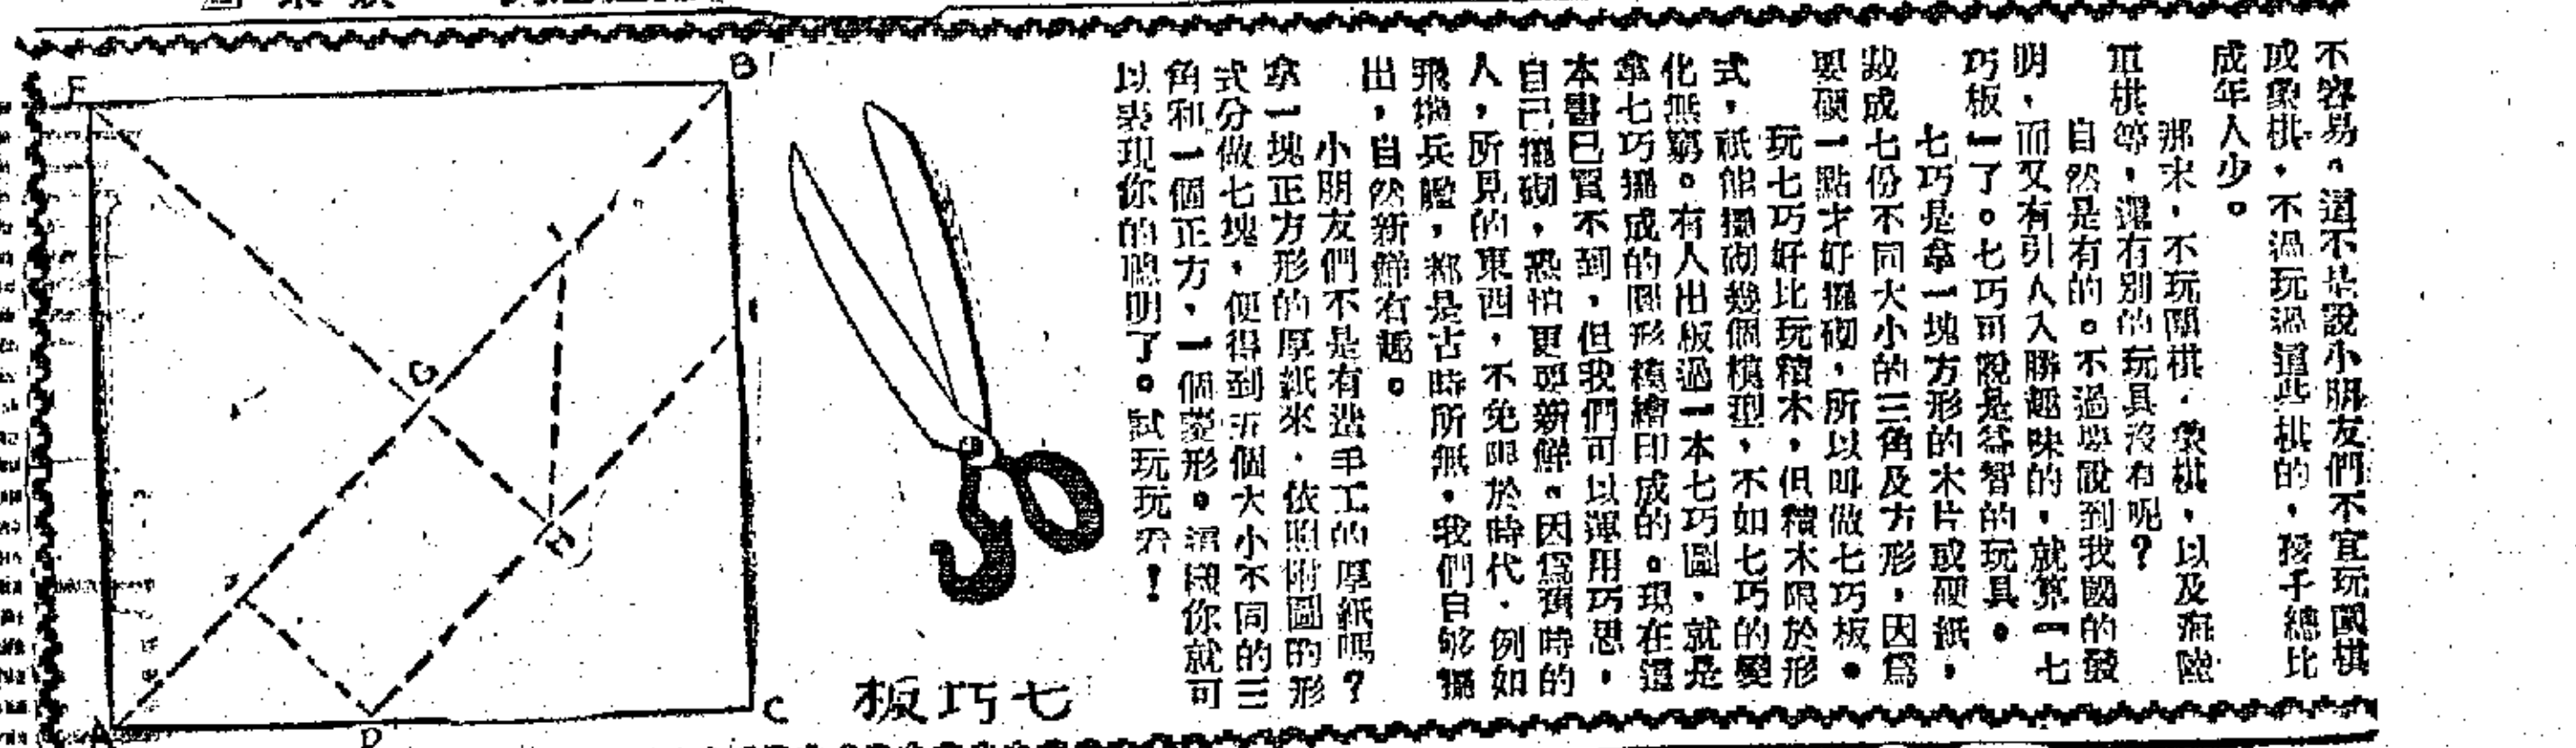 不容易。這不是說小朋友們不宜玩圍棋
或象棋，不過玩過這些棋的，孩子總比
成年人少。
那末，不玩圍棋，象棋，以及海陸
軍棋等，還有別的玩具沒有呢？
自然是有的。不過要說到我國的發
明，而又有引人入勝趣味的，就算「七
巧板」了。七巧可說是益智的玩具。
七巧是拿一塊方形的木片或硬紙，
裁成七份不同大小的三角及方形，因爲
要硬一點才好擺砌，所以叫做七巧板。
玩七巧好比玩積木，但積木限於形
式，祇能擺砌幾個模型，不如七巧的變
化無窮。有人出板過一本七巧圖，就是
拿七巧擺成的圖形模繪印成的。現在這
本書已買不到，但我們可以運用巧思，
自己擺砌，恐怕更要新鮮。因爲舊時的
人，所見的東西，不免限於時代，例如
飛機兵艦，都是古時所無，我們自够擺
出，自然新鮮有趣。
小朋友們不是有些手工的厚紙嗎？
拿一塊正方形的厚紙來，依照附圖的形
式分做七塊，便得到五個大小不同的三
角和一個正方，一個菱形。這樣你就可
以表現你的聰明了。試玩玩看！
七巧板
F
B
G
H
J
C